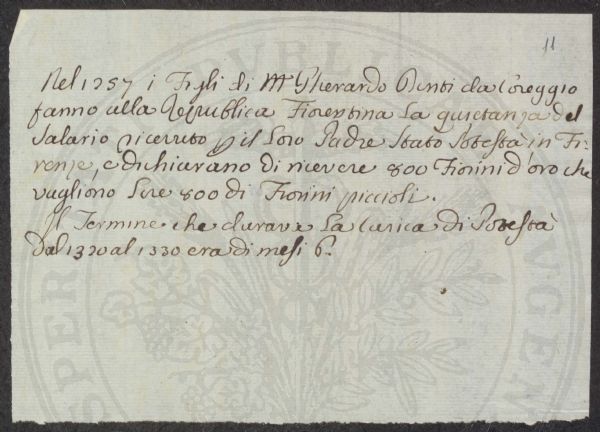 11
Nel 1257 i Figli di Mr Gherardo Denti da Coreggio
fanno alla Republica Fiorentina la quietanza del
Salario ricevuto p il loro Padre Stato Potestà in Fi-
renze, e dichiarano di ricevere 800 Fiorini d'oro che
vagliono lire 800 di Fiorini piccioli.
Il Termine che durava la Carica di Potestà
dal 1320 al 1330 era di mesi 6.